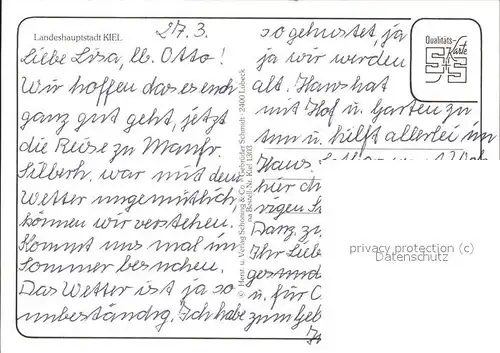 Landeshauptstadt KIEL
27.3.
Liebe Lisa, lb. Otto!
Wir hoffen das es euch
ganz gut geht, jetzt
die Reise zu Manfr.
Silberh. war mit dem
Wetter ungemütlich,
können wir verstehen.
Kommt uns mal im
Sommer besuchen.
Das Wetter ist ja so
unbeständig, Ich habe
© Herst. u. Verlag Schöning & Co. + Gebrüder Schmidt · 2400 Lübeck
Bestell-Nr. Kiel 1303
so gehustet, ja
ja wir werden
alt. Hans hat
mit Hof u. Garten zu
tun u. hilft allerlei im
Haus.
hier
vigen
Danz. zu
Ihr Lieb
gesund
u. für
zum Geb
Qualitäts-
Karte
privacy protection (c)
Datenschutz